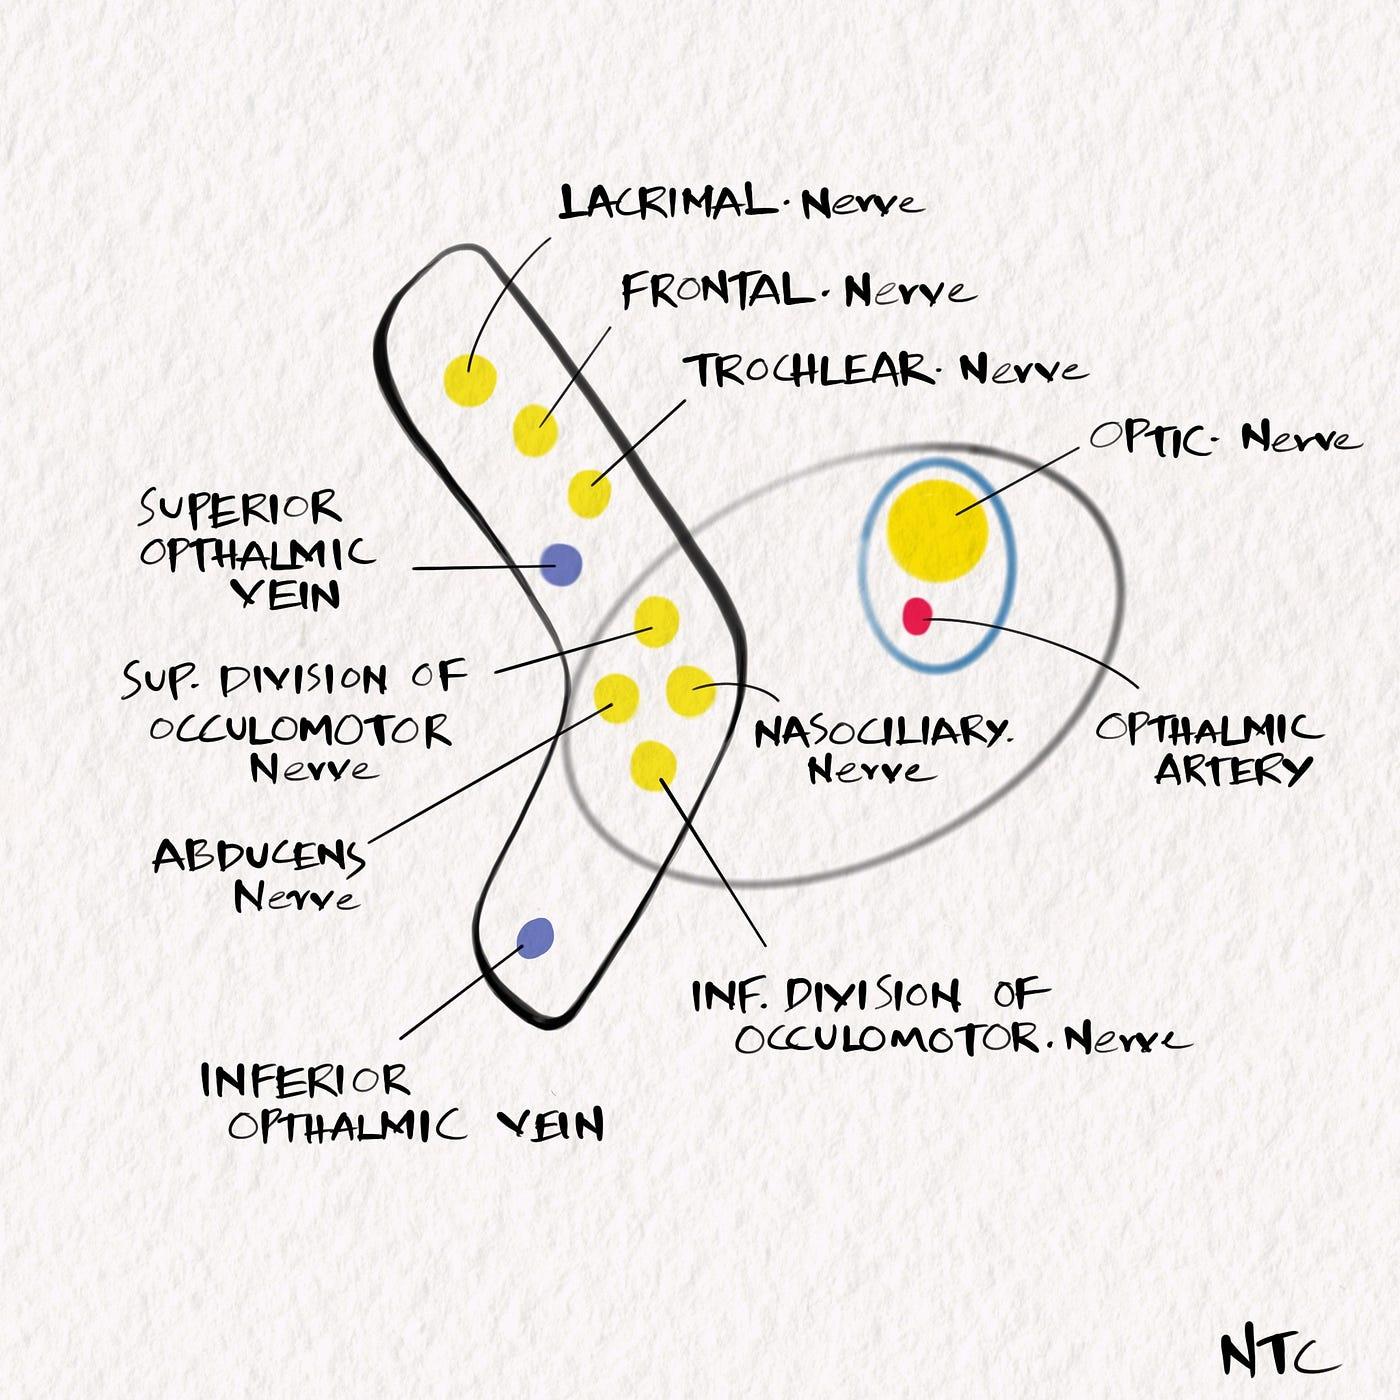 LACRIMAL. Nerve
FRONTAL. Nerve
TROCHLEAR. Nerve
OPTIC. Nerve
SUPERIOR
OPTHALMIC
VEIN
SUP. DIVISION OF
OCCULOMOTOR
Nerve
NASOCILIARY.
Nerve
OPTHALMIC
ARTERY
ABDUCENS
Nerve
INF. DIVISION OF
OCCULOMOTOR. Nerve
INFERIOR
OPTHALMIC VEIN
NTC